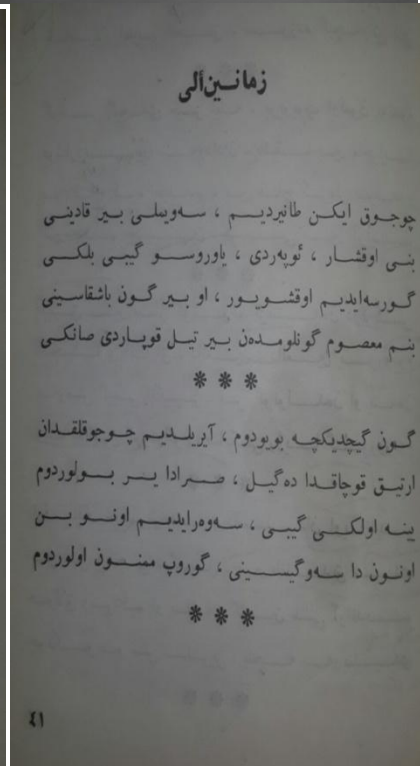 زمانـین‌الی
چوجوق ایکن طانیردیـم ، سه‌ویملی بیر قادینی
بنی اوقشـار ، ئوپه‌ردی ، یاوروسـو گیبی بلکی
گـورسه‌ایدیم اوقشـویـور ، او بیر گون باشقاسینی
بنم معصوم گونلومده‌ن بیر تیل قوپاردی صانکی
* * *
گـون گیچدیکچـه بویودوم ، آیریلدیـم چـوجوقلقدان
ارتیق قوجاقدا ده‌گیل ، صـرادا یـر بـولوردوم
ینـه اولکـی گیبی ، سـه‌وه‌رایدیـم اونـو بـن
اونون دا سـه‌وگیسـینی ، گوروپ ممنـون اولوردوم
* * *
٤١